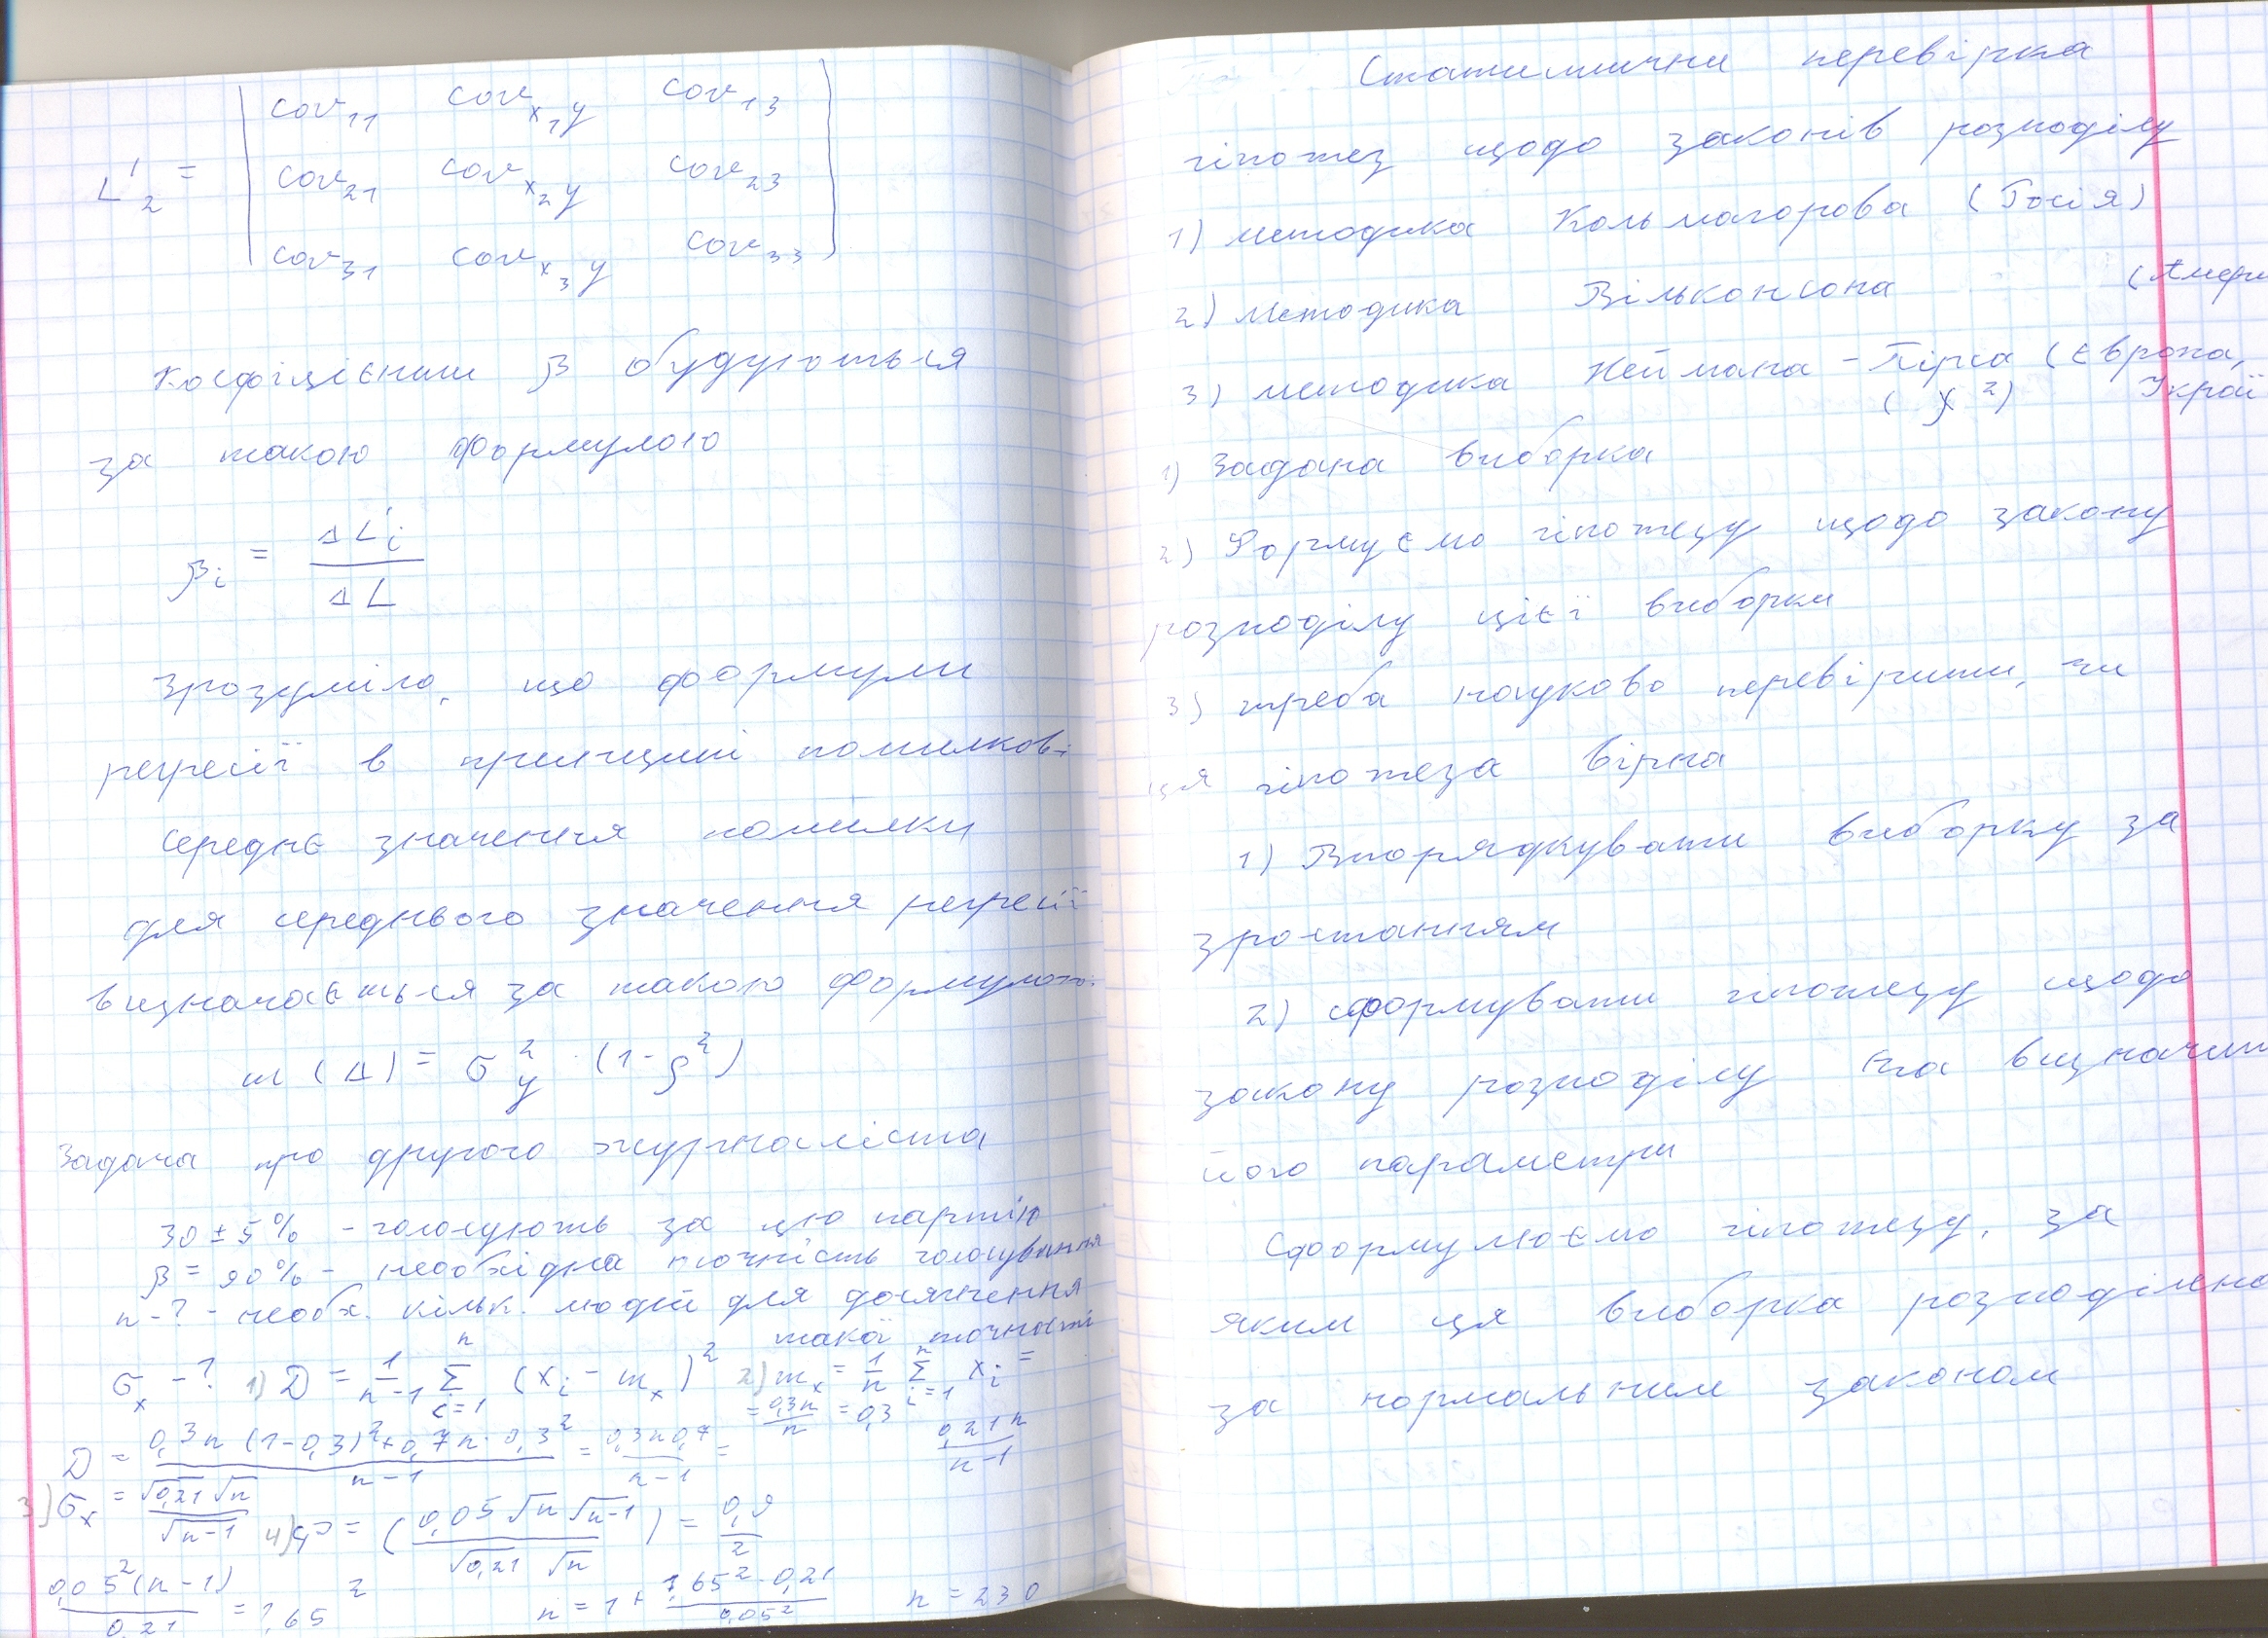 L'₂ = | cov₁₁ cov x₁y cov₁₃ |
| cov₂₁ cov x₂y cov₂₃ |
| cov₃₁ cov x₃y cov₃₃ |
Коефіцієнти β будуються
за такою формулою
βᵢ = ΔL'ᵢ / ΔL
Зрозуміло, що формули
регресії в принципі помилкові
Середнє значення помилки
для середнього значення регресії
визначається за такою формулою:
m(Δ) = σ²y · (1-ρ²)
Задача про другого журналіста
30 ± 5% - голосують за цю партію
β = 90% - необхідна точність голосування
n - ? - необх. кільк. людей для досягнення
такої точності
σₓ - ? 1) D = 1/(n-1) Σⁿᵢ₌₁ (xᵢ - mₓ)² 2) mₓ = 1/n Σⁿᵢ₌₁ xᵢ =
= 0,3n/n = 0,3
D = (0,3n (1-0,3)² + 0,7n · 0,3²)/(n-1) = 0,3n0,7/(n-1) = 0,21n/(n-1)
3) σₓ = √0,21 √n / √n-1 4) φ = (0,05 √n √n-1 / √0,21 √n) = 0,9/2
0,05²(n-1)/0,21 = 1,65² n = 1 + 1,65² · 0,21 / 0,05² n = 230
Статистична перевірка
гіпотез щодо законів розподілу
1) методика Кольмагорова (Росія)
2) Методика Вільконсона (Амери
3) методика Неймана - Пірса (Європа,
(χ²) Украї
1) Задана виборка
2) Формуємо гіпотезу щодо закону
розподілу цієї виборки
3) треба науково перевірити, чи
ця гіпотеза вірна
1) Впорядкувати виборку за
зростанням
2) сформувати гіпотезу щодо
закону розподілу та визначит
його параметри
Сформулюємо гіпотезу, за
яким ця виборка розподілена
за нормальним законом